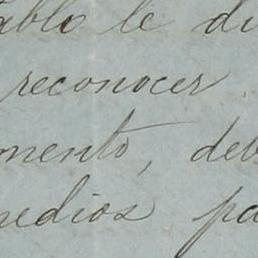 ablo le di
reconocer
mento, deb
medios pa